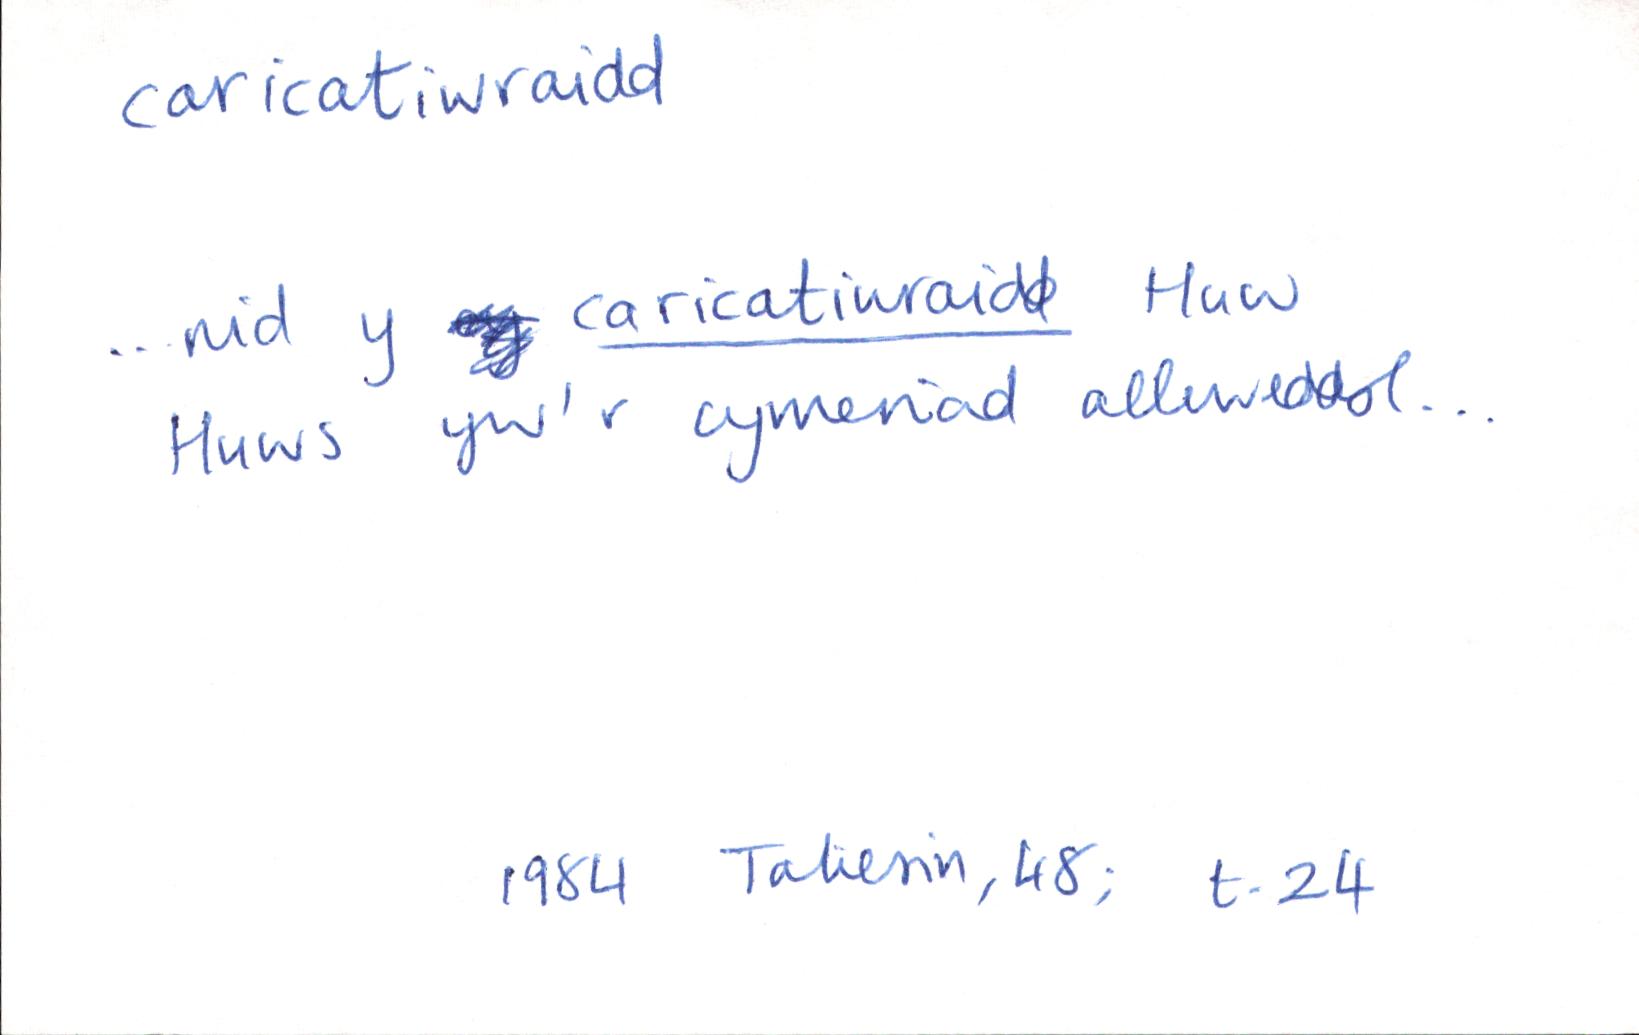 caricatiwraidd
...nid y caricatiwraidd Huw
Huws yw'r cymeriad allweddol...
1984 Taliesin, 48; t. 24